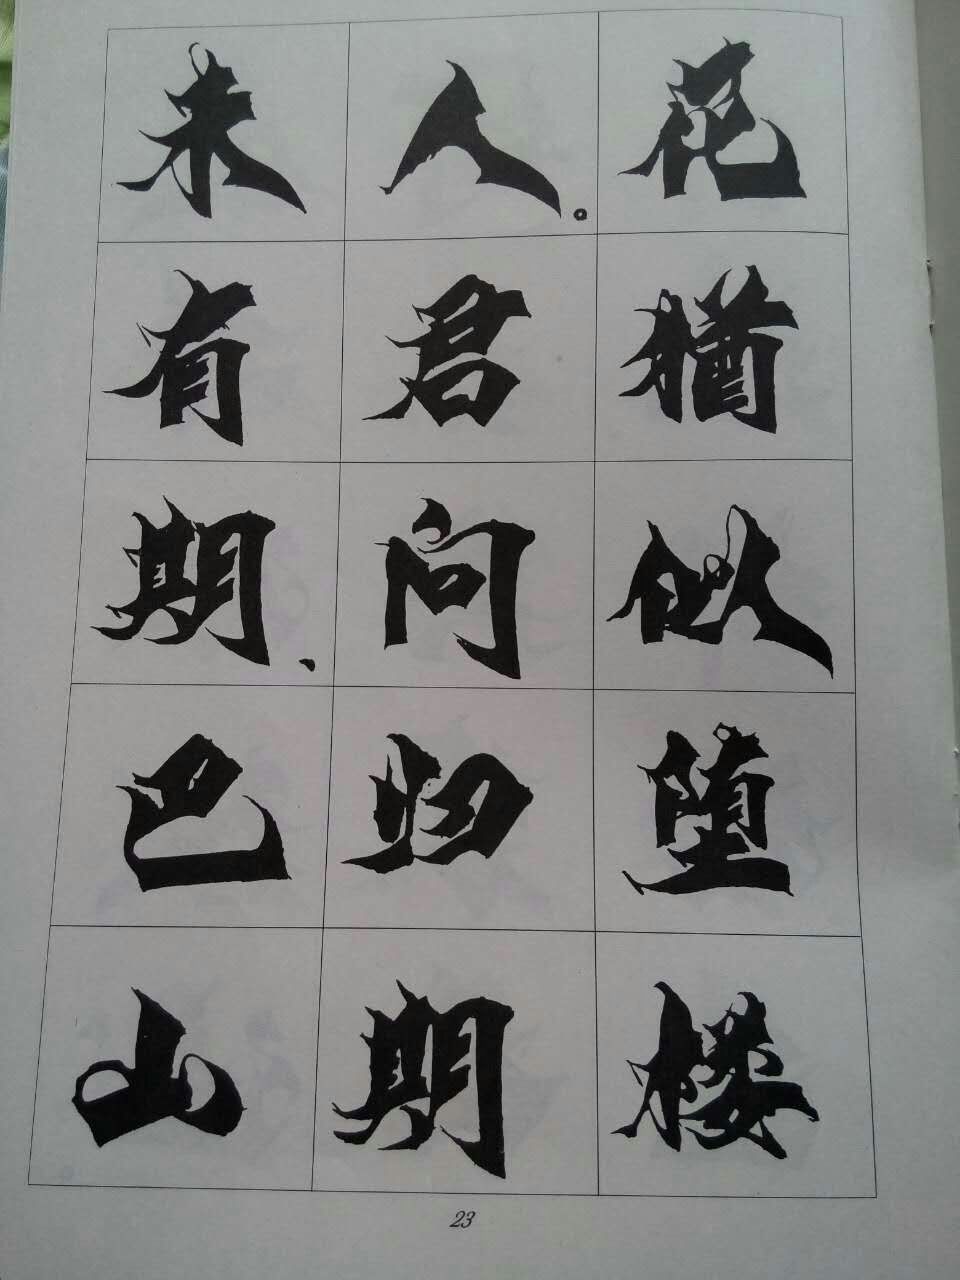 花犹似堕楼
人。君问归期
未有期、巴山
23